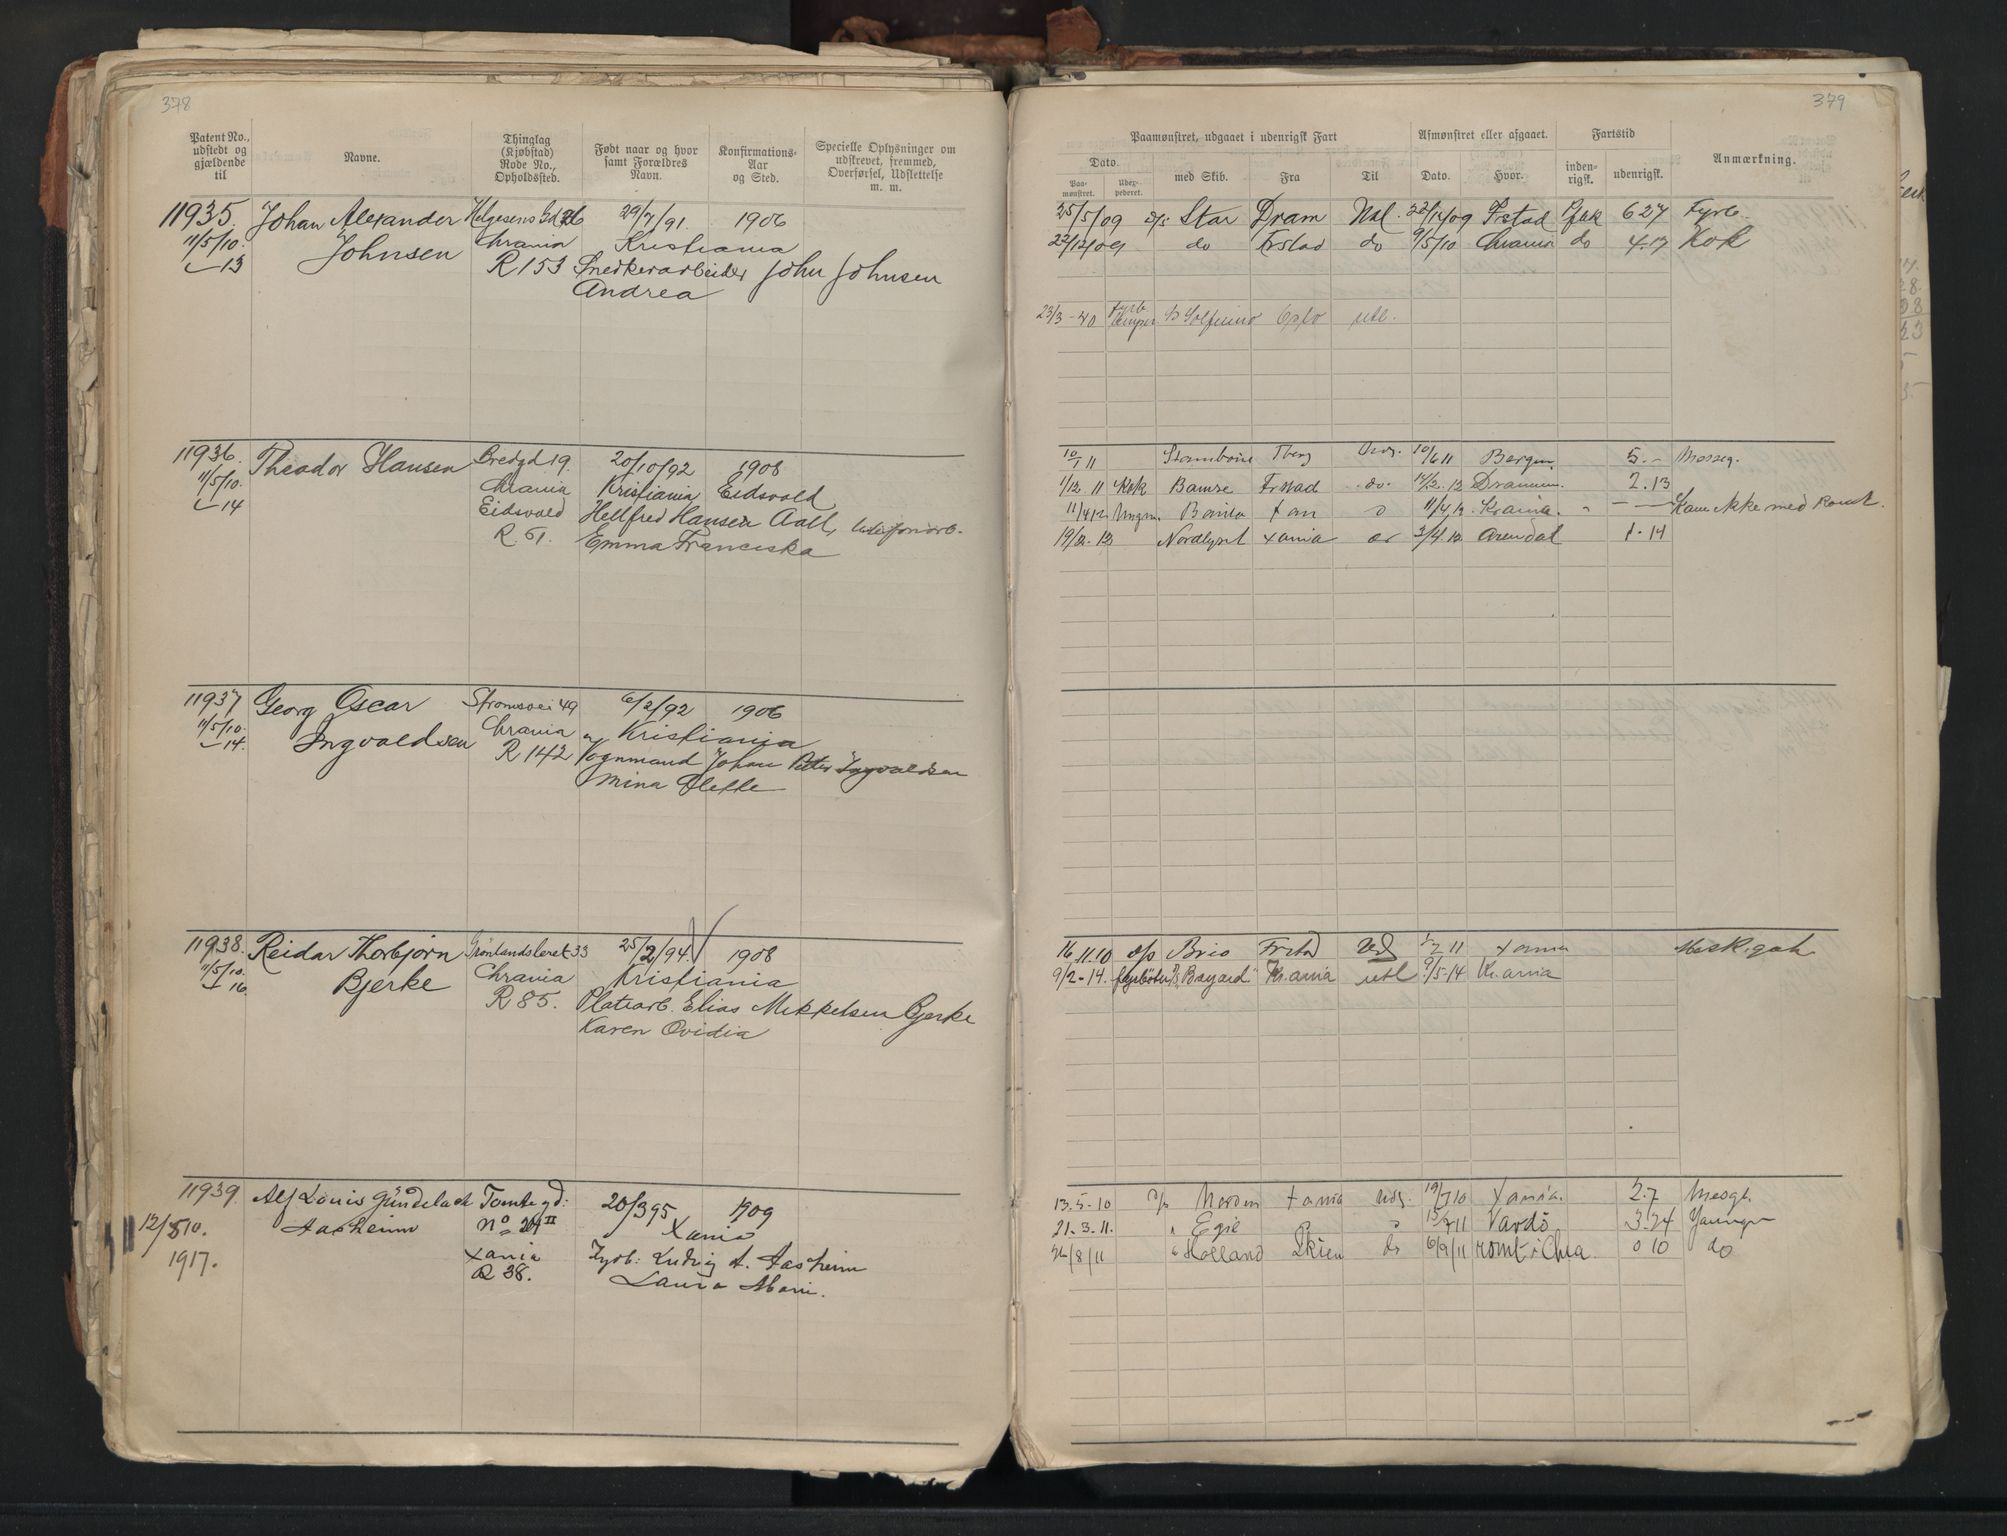 378
Patent No., udstedt og gjældende til
Navne.
Thinglag (Kjøbstad) Rode No., Opholdssted.
Født naar og hvor samt Forældres Navn.
Konfirmations-Aar og Sted.
Specielle Oplysninger om udskrevet, fremmed, Overførsel, Udslettelse m. m.
11935. Johan Alexander Helgesens Gd 26 29/7/91. 1906
11/5/10. Johnsen Chrania Kristiania
13 R 153 Snedkerarbeider John Johnsen
Andrea
11936. Theodor Hansen Bredgd 19. 20/10/92 1908
11/5/10. Chrania Kristiania Eidsvold
14 Eidsvold Hellfred Hansen Aall,
R. 61. Emma Franciska
11937 Georg Oscar Strømsvei 49 6/2/92 1906
11/5/10. Ingvaldsen Chrania Kristiania
14. R 142 Vognmand Johan Petter Ingvaldsen
Mina Olette
11938. Reidar Thorbjørn Grønlandsleret 33 25/2/94. 1908
11/5/10. Bjerke Chrania Kristiania
16. R 85. Platearb. Elias Mikkelsen Bjerke
Karen Ovidia
11939. Alf Louis Gündelach Tomtegd: 20/3 95 1909
12/5 10. Aasheim No 24 II Xania
1917. Xania Fyrb: Ludvig A. Aasheim
R 38. Laura Marie.
379
Paamønstret, udgaaet i udenrigsk Fart
Afmønstret eller afgaaet.
Fartstid
Anmærkning.
Dato.
Paa-mønstret.
Udex-pederet.
med Skib.
Fra
Til
Dato.
Hvor.
inden-rigsk.
udenrigsk.
25/5/09 d/s Star Dram Udl. 22/12/09 Frstad 627 Fyrb.
22/12/09 do Frstad do 9/5/10 Chrania do 4.17 Kok
23/3-40 Solferino Oslo utl.
10/1 11 Tbrg 10/6 11 Bergen. 5.- Messeg.
1/12. 11 Kok Bamse Frstad do. 14/2. 12 Drammen. 2.13
11/4 12. Ungm. 11/4 12. Krania. - - Kom ikke med Romt.
19/2. 12 Nordlyset Xania 3/4 12 Arendal 1-14
16.11.10 d/s Brio Frstad Udl 11 Xania Messegut
9/2-14. fyrbøter "Bayard" Kr.ania utl 9/5-14 Kr.ania
13.5-10 Norden Xania Udl. 19/7 10 Xania. 2.7 Messgt.
21.3.11. " Egil 11 Vardö 3.24 Younger
26/8/11 " Holland Skien do 6/9/11 romt i Chra. 0 10 do